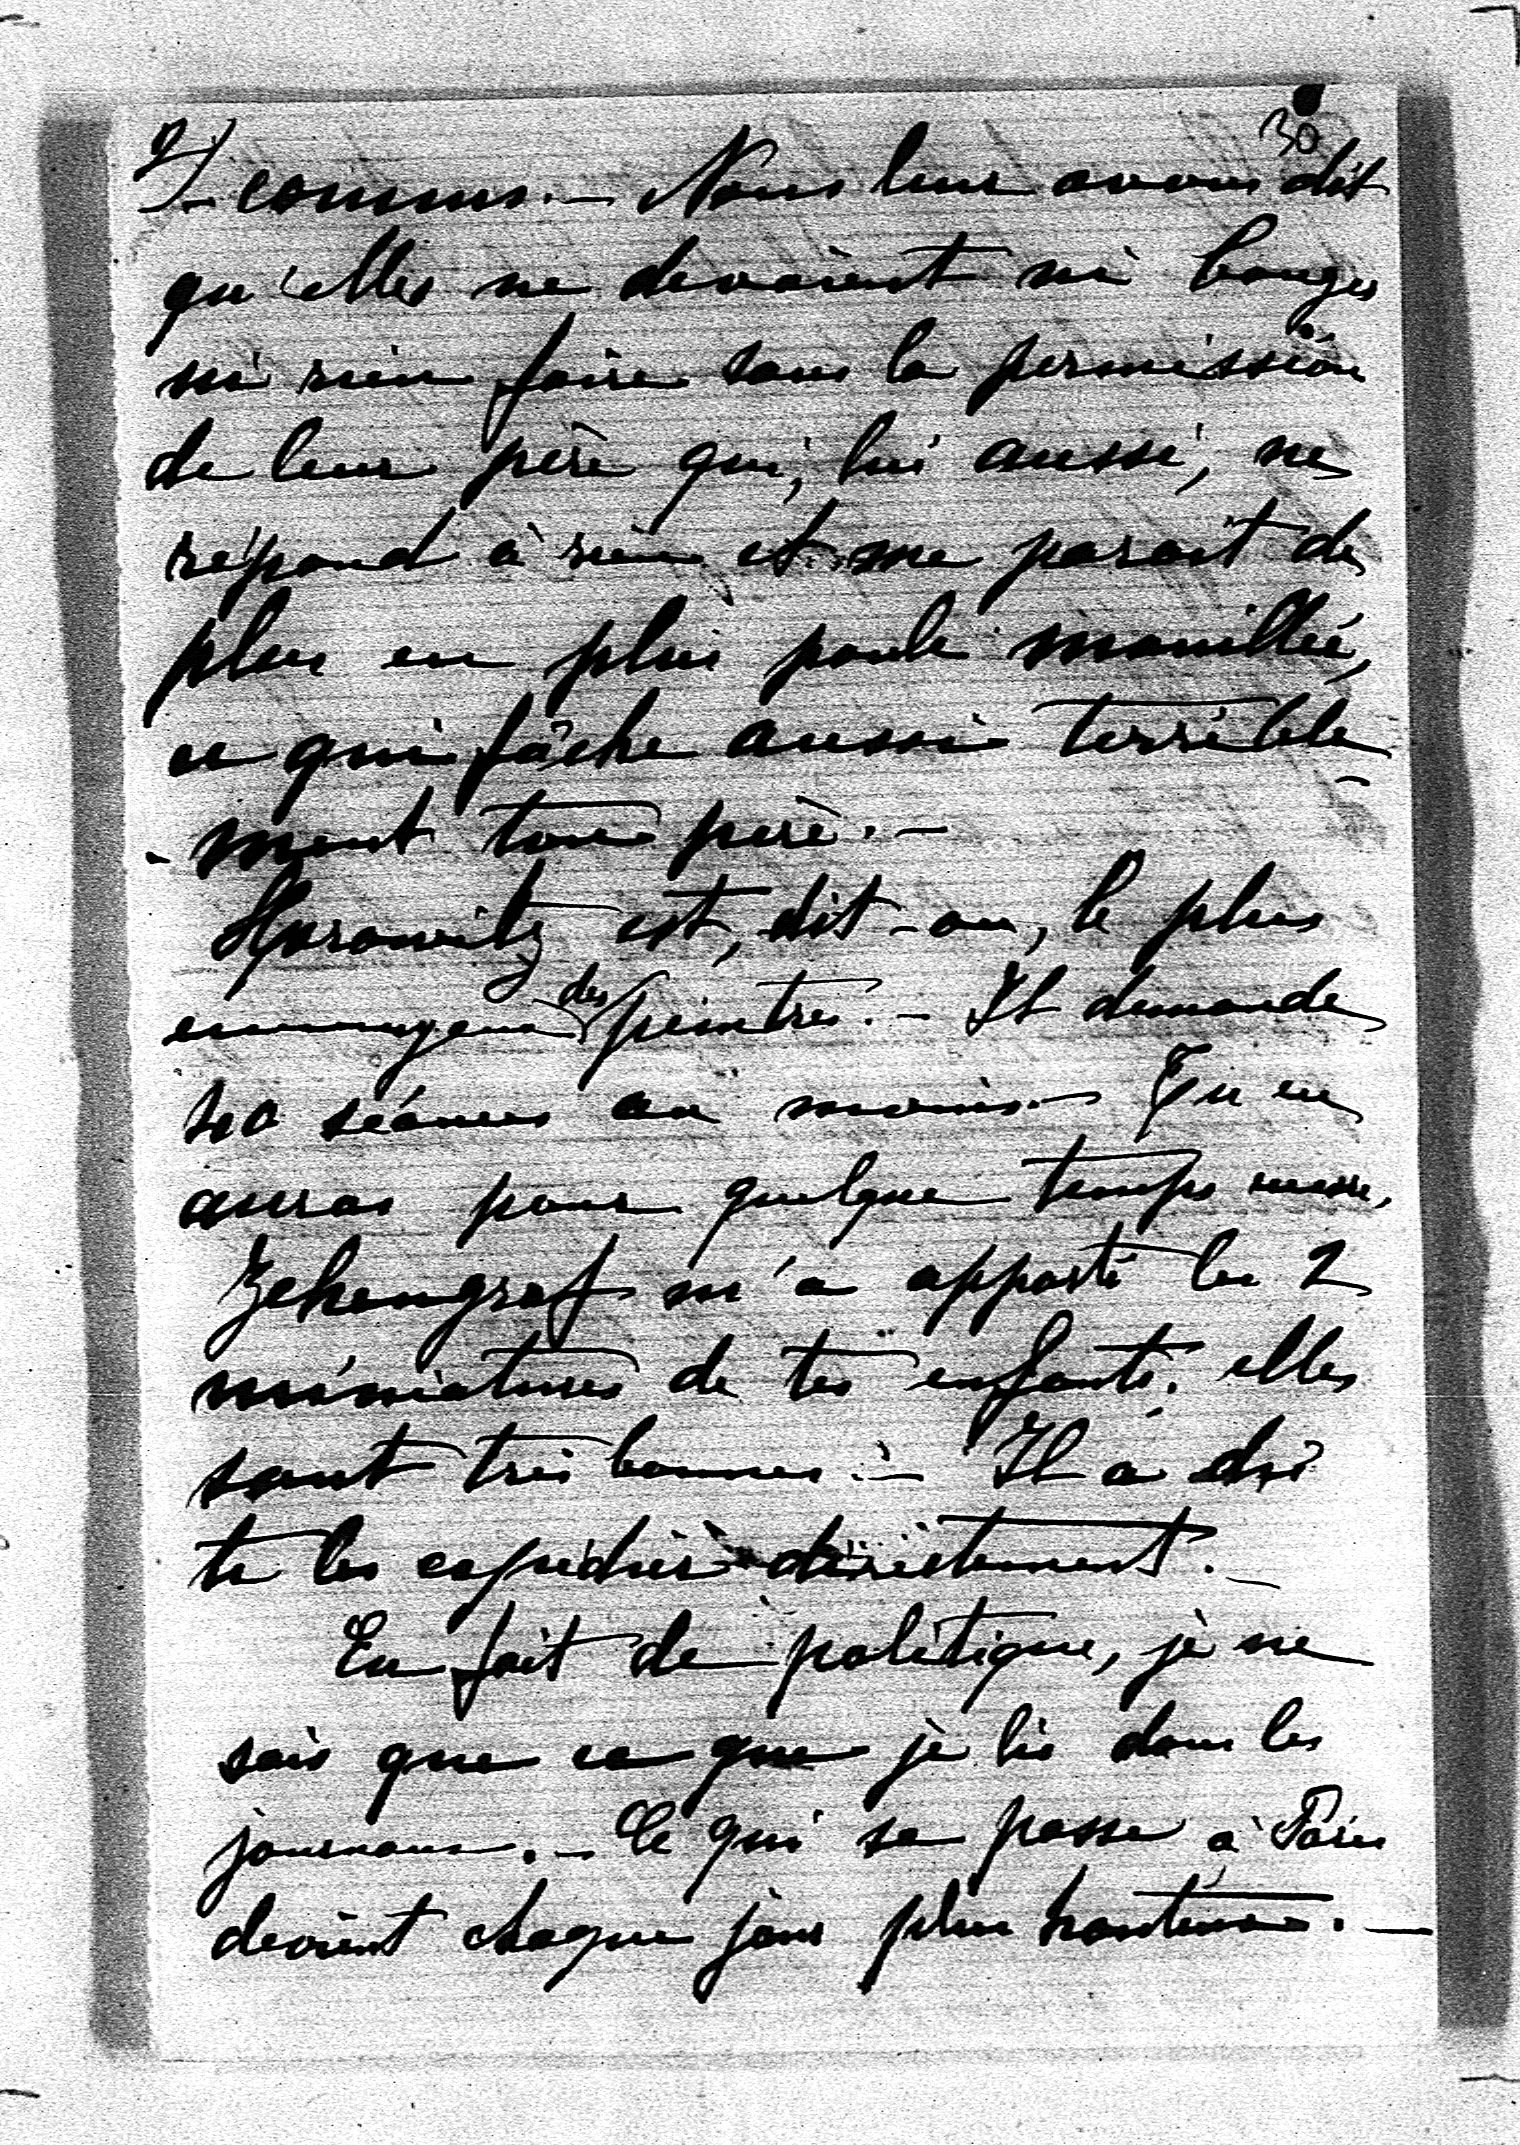 2)
30
connus. — Nous leur avons dit
qu'elles ne devaient ni bouger
ni rien faire sans la permission
de leur père qui, lui aussi, ne
répond à rien et me parait de
plus en plus poule mouillée,
ce qui fâche aussi terrible-
-ment ton père. —
Horowitz est, dit-on, le plus
ennuyeux des peintres. — Il demande
40 séances au moins. — Tu en
auras pour quelque temps encore.
Zehengraf m'a apporté les 2
miniatures de tes enfants. elles
sont très bonnes. — Il a dû
te les expédier directement. —
En fait de politique, je ne
sais que ce que je lis dans les
journaux. — Ce qui se passe à Paris
devient chaque jour plus honteux. —